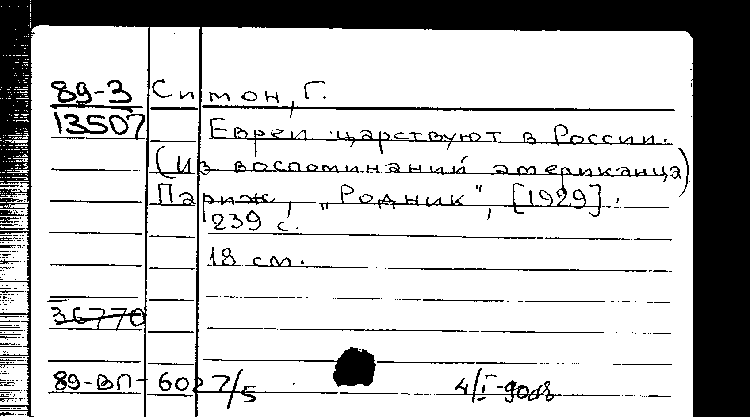 89-3 Симон, Г.
13507 Евреи царствуют в России.
(Из воспоминаний американца)
Париж, „Родник“, [1929].
239 с.
18 см.
36770
89-ВП-6027/5 4/I-90